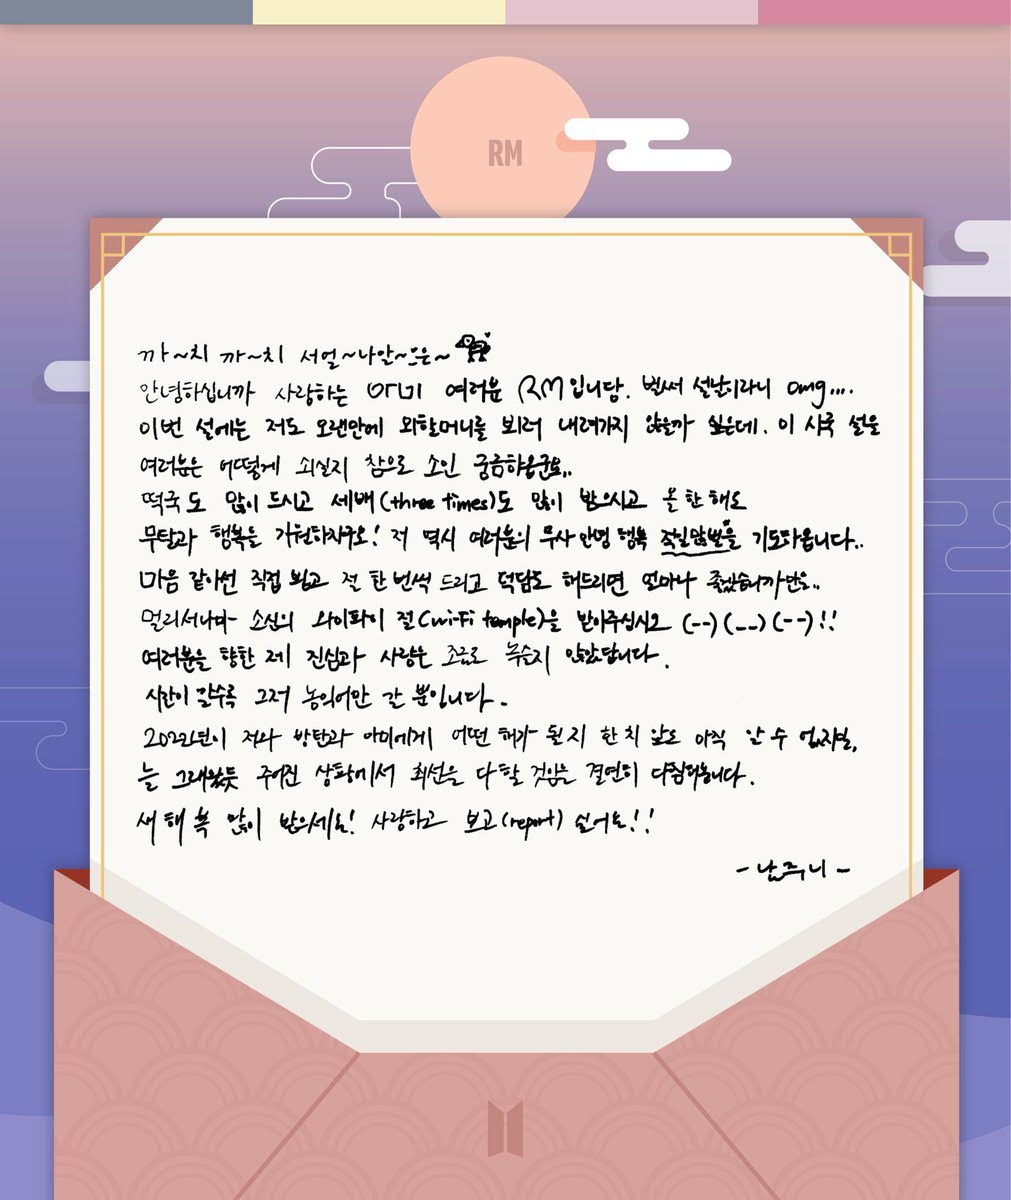 RM
까~치 까~치 서얼~나안~은~
안녕하십니까 사랑하는 아미 여러분 RM입니당. 벌써 설날이라니 omg....
이번 설에는 저도 오랜만에 외할머니를 뵈러 내려가지 않을까 싶은데. 이 시국 설을
여러분은 어떻게 쇠실지 참으로 소인 궁금하옵군요..
떡국도 많이 드시고 세배(three times)도 많이 받으시고 올 한 해도
무탈과 행복을 기원하자구요! 저 역시 여러분의 무사 안녕 행복 을 기도하옵니다..
마음 같아선 직접 뵙고 절 한 번씩 드리고 덕담도 해드리면 얼마나 좋겠습니까만은..
멀리서나마 소신의 와이파이 절(wi-fi temple)을 받아주십시오 (--)(__)(--)!!
여러분을 향한 제 진심과 사랑은 조금도 녹슬지 않았답니다.
시간이 갈수록 그저 농익어만 갈 뿐입니다.
2022년이 저와 방탄과 아미에게 어떤 해가 될지 한 치 앞도 아직 알 수 없지만,
늘 그래왔듯 주어진 상황에서 최선을 다할 것임은 결연히 다짐하옵니다.
새해 복 많이 받으세요! 사랑하고 보고(report) 싶어요!!
- 남주니 -